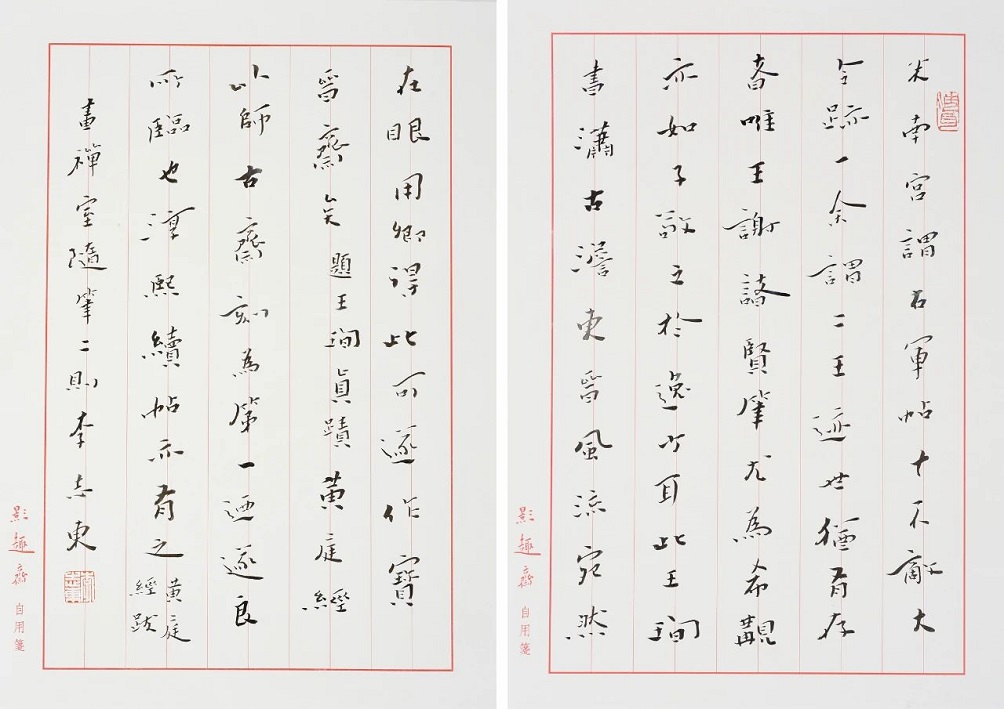 米南宮謂右軍帖十不敵大
令跡一余謂二王迹世猶有存
者唯王謝諸賢筆尤為希覯
亦如子敬之於逸少耳此王珣
書瀟古澹東晉風流宛然
影趣齋自用箋
在眼用卿得此可遂作寶
晉齋矣 題王珣眞蹟 黃庭經
以師古齋刻為第一迺遂良
所臨也淳熙續帖亦有之 黃庭
經跋
畫禪室隨筆二則李志東
影趣齋自用箋